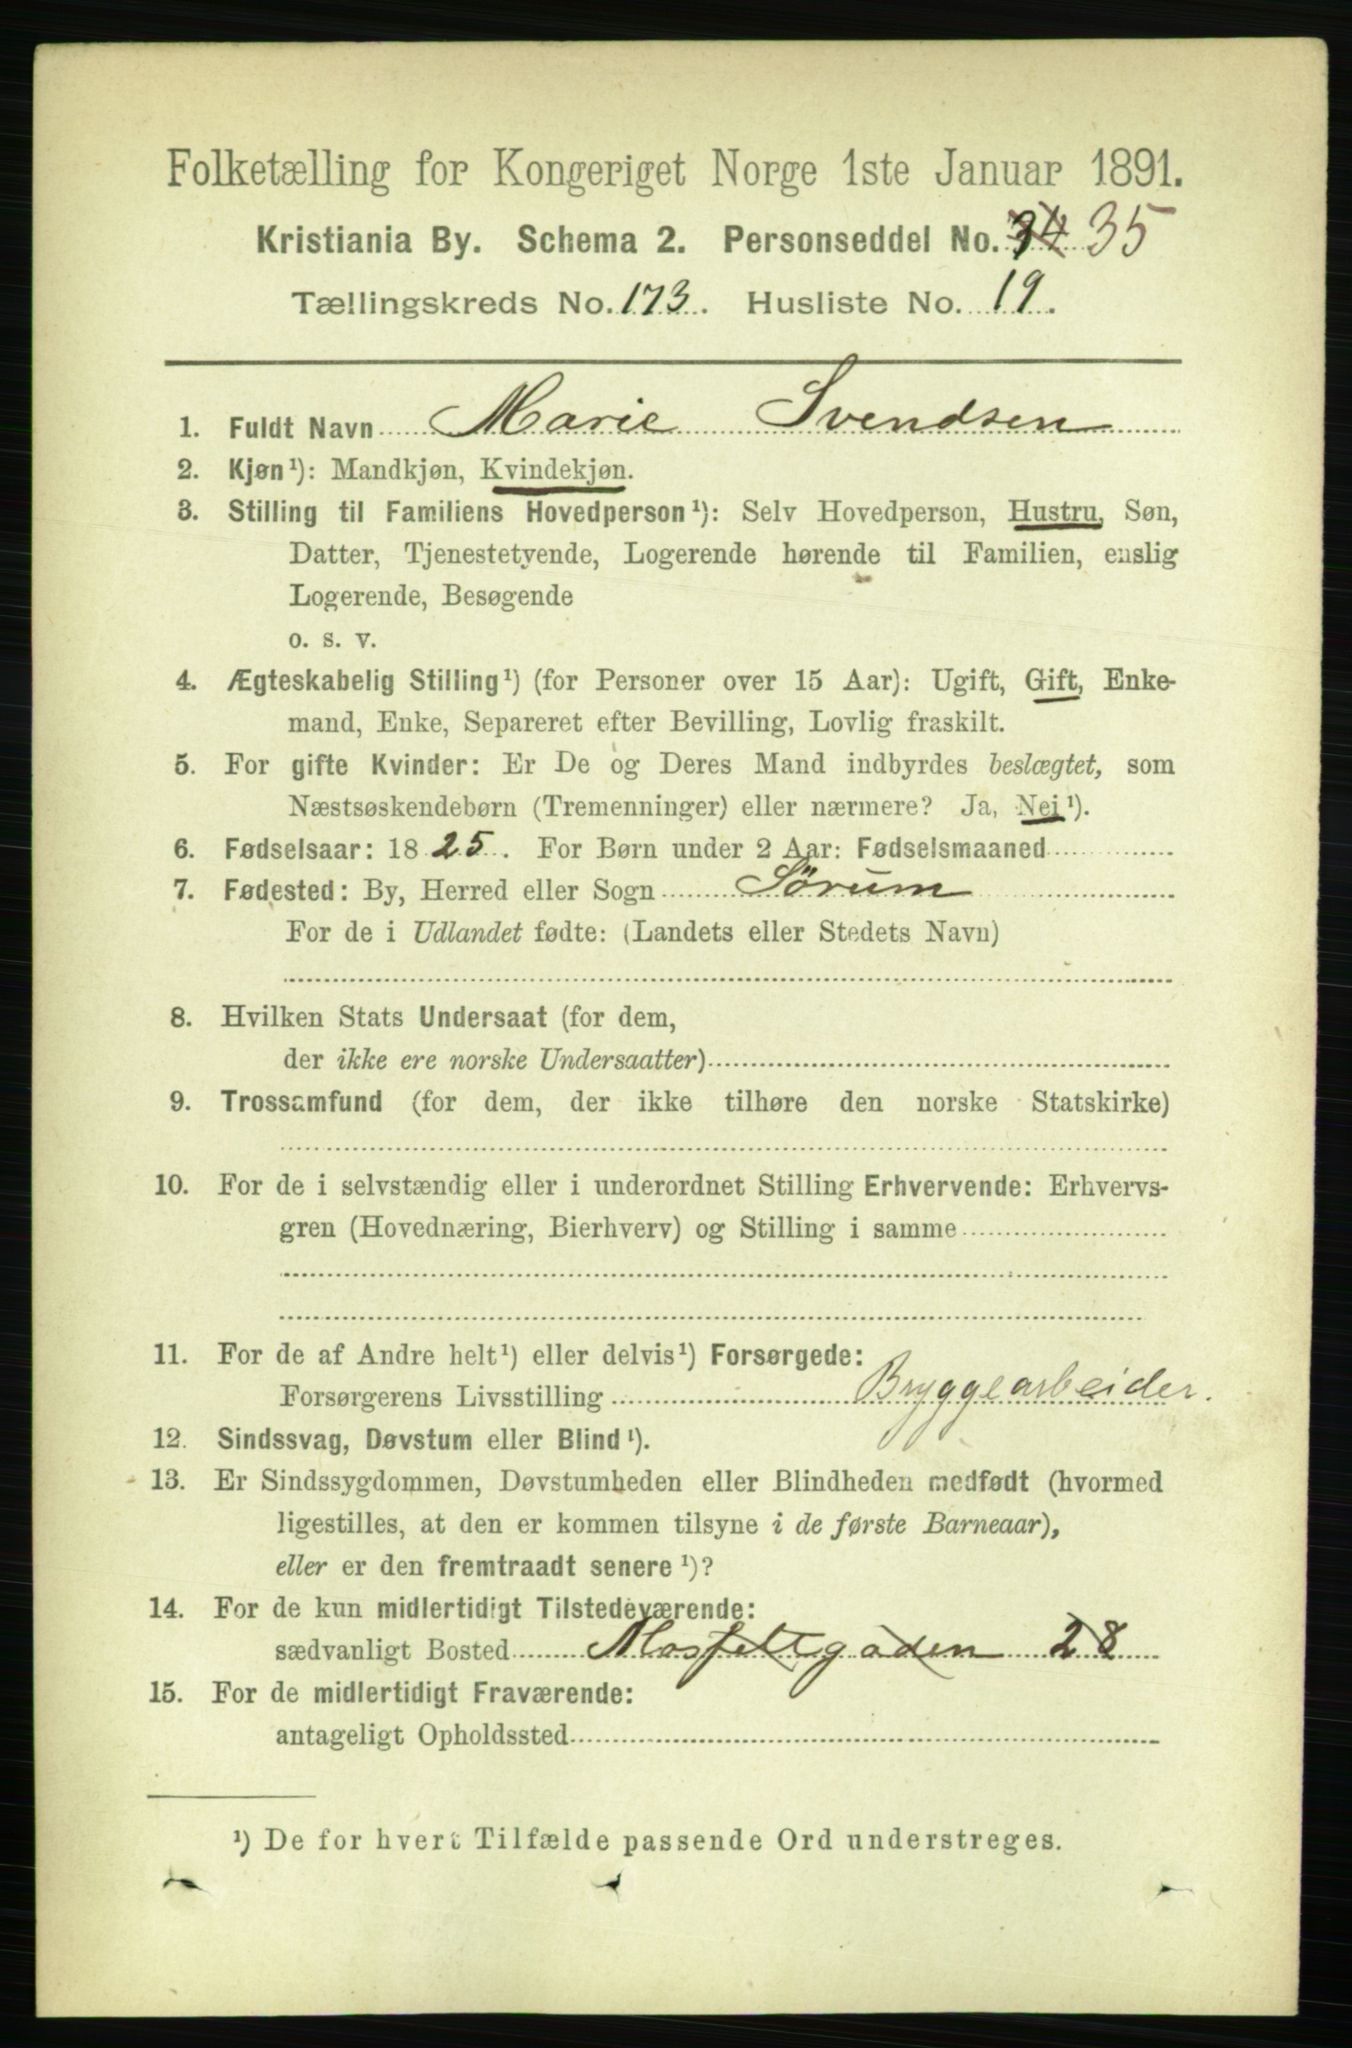 Folketælling for Kongeriget Norge 1ste Januar 1891.
Kristiania By. Schema 2. Personseddel No. 34 35
Tællingskreds No. 173. Husliste No. 19.
1. Fuldt Navn Marie Svendsen
2. Kjøn¹): Mandkjøn, Kvindekjøn.
3. Stilling til Familiens Hovedperson¹): Selv Hovedperson, Hustru, Søn,
Datter, Tjenestetyende, Logerende hørende til Familien, enslig
Logerende, Besøgende
o. s. v.
4. Ægteskabelig Stilling¹) (for Personer over 15 Aar): Ugift, Gift, Enke-
mand, Enke, Separeret efter Bevilling, Lovlig fraskilt.
5. For gifte Kvinder: Er De og Deres Mand indbyrdes beslægtet, som
Næstsøskendebørn (Tremenninger) eller nærmere? Ja, Nei¹).
6. Fødselsaar: 1825. For Børn under 2 Aar: Fødselsmaaned
7. Fødested: By, Herred eller Sogn Sørum
For de i Udlandet fødte: (Landets eller Stedets Navn)
8. Hvilken Stats Undersaat (for dem,
der ikke ere norske Undersaatter)
9. Trossamfund (for dem, der ikke tilhøre den norske Statskirke)
10. For de i selvstændig eller i underordnet Stilling Erhvervende: Erhvervs-
gren (Hovednæring, Bierhverv) og Stilling i samme
11. For de af Andre helt¹) eller delvis¹) Forsørgede:
Forsørgerens Livsstilling Bryggearbeider.
12. Sindssvag, Døvstum eller Blind¹).
13. Er Sindssygdommen, Døvstumheden eller Blindheden medfødt (hvormed
ligestilles, at den er kommen tilsyne i de første Barneaar),
eller er den fremtraadt senere¹)?
14. For de kun midlertidigt Tilstedeværende:
sædvanligt Bosted 28
15. For de midlertidigt Fraværende:
antageligt Opholdssted
¹) De for hvert Tilfælde passende Ord understreges.